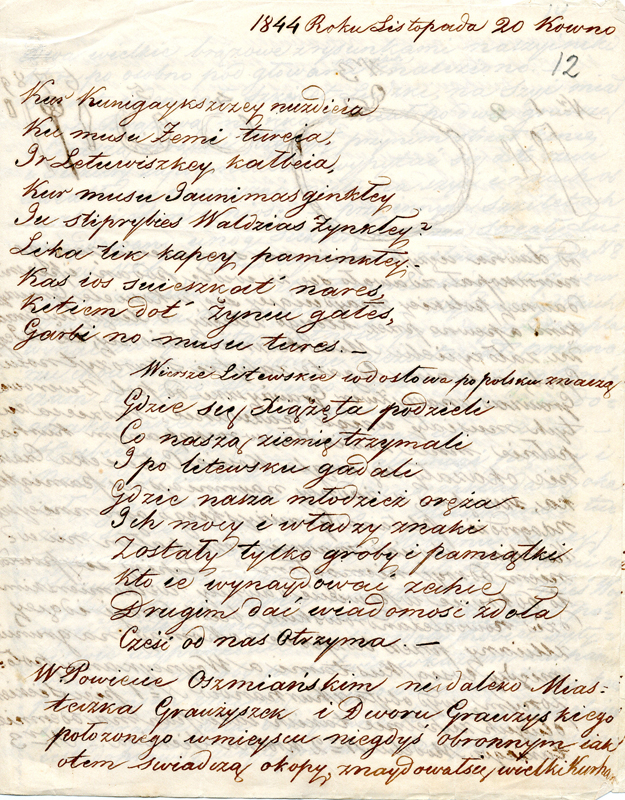 1844 Roku Listopada 20 Kowno
12
Kur Kunigaykszczey nuzdieia
Ku musu Żemi tureia,
Ir Letuwiszkey kałbeia,
Kur musu Jaunimas ginkłey
Iu stiprybies Waldzias Zynkłey?
Lika tik kapey paminkłey.
Kas ios suieszkat' nares,
Kitiem dot' Żyniu gales,
Garbi no musu tures. —
Wiersze Litewskie wdosłowa po polsku znaczą
Gdzie się Xiążęta podzieli
Co naszą ziemię trzymali
I po litewsku gadali
Gdzie nasza młodzież oręża
Ich mocy i władzy znaki
Zostały tylko groby i pamiątki
Kto ie wynaydować zechce
Drugim dać wiadomość zdoła
Cześć od nas Otrzyma. —
W Powiecie Oszmiańskim niedaleko Mias-
teczka Graużyszek i Dworu Grauzyskiego
położonego wmieyscu niegdyś obronnym iak
otem świadczą okopy, znaydował się wielki Kurha